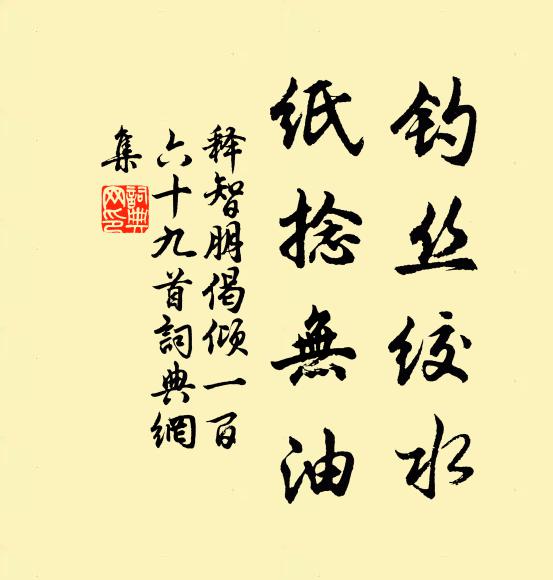 钓丝绞水
纸捻無油
释智朋偈倾一百
六十九首詞典網
集
詞典
网印